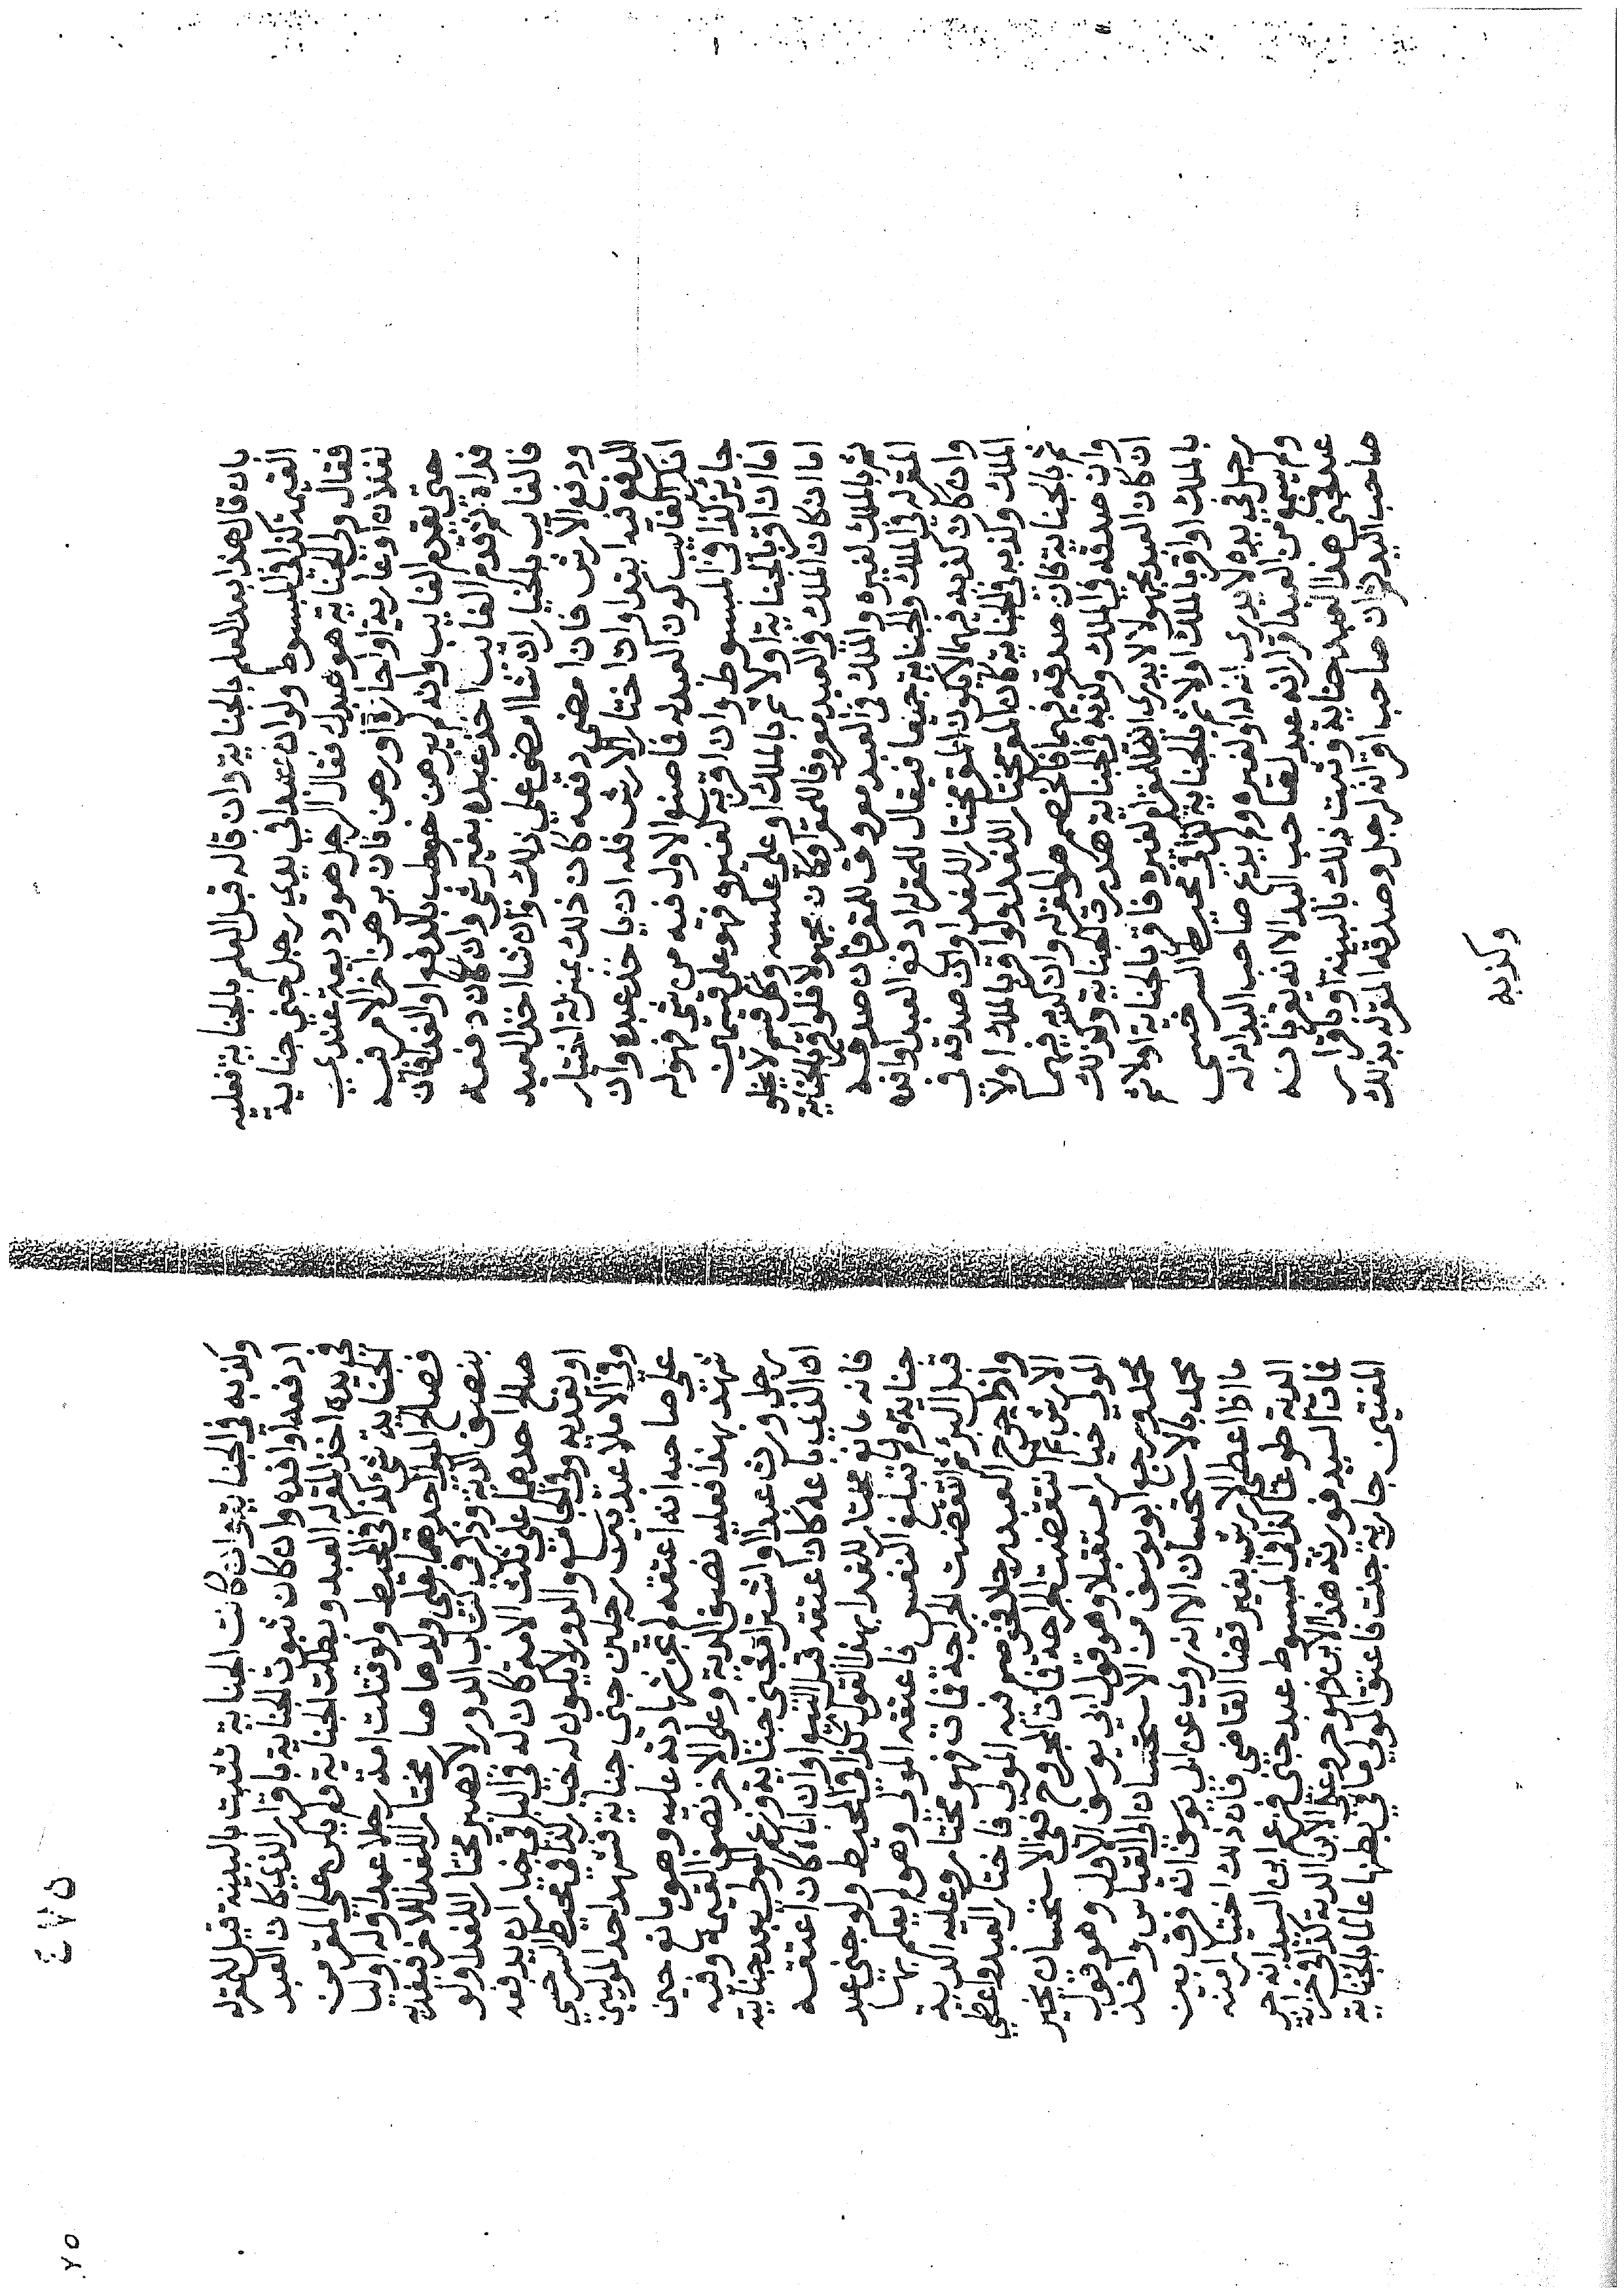 بان قال هذا بعد العلم بالجناية وان قاله قبل العلم بالجناية فعليه
القيمة كذا في المبسوط ولو ان عبدا في يدي رجل جنى جناية
فقال ولي الجناية هو عبدك فقال الرجل هو وديعة عندي
لفلان او عارية او اجارة او رهن فان برهن اخر الامر فيه
حتى يقدم الغايب وان لم يبرهن خوطب بالدفع او الفدا فان
فداه ثم قدم الغايب اخذ عبده بغير شي وان كان دفعه
فالغايب بالخيار ان شا امضى على ذلك وان شا اخذ العبد
ودفع الارش فان امضى دفعه كان ذلك بمنزلة اختيار
الدفع فيه ابتدا وان اختار الارش فله ان ياخذ عبده وان
انكر الغايب كون العبد له فما صنع الاول فيه من شي فهو له
جايز كذا في المبسوط وان اقر به لغيره فهو على قسمين
اما ان اقر بالجناية اولا ثم بالملك او على عكسه وكل قسم لا يخلو
اما ان كان الملك في العبد معروفا للمقر او كان مجهولا فلو اقر بالجناية
ثم بالملك لغيره والملك في العبد معروف للمقر فان صدقه
المقر له في الملك والجناية جميعا فيقال للمقر له ادفع العبد او افده
وان كان كذبه فيهما لا يكون المقر مختارا للفدا وان صدقه في
الملك وكذبه في الجناية كان المقر مختارا للفدا ولو اقر بالملك اولا
ثم بالجناية فان صدقه فيهما فالخصم هو المقر له وان كذبه فيهما
وان صدقه في الملك وكذبه في الجناية هدرت الجناية وكذلك
ان كان العبد مجهولا لا يدري انه للمقر ام لغيره فاقر بالجناية اولا ثم
بالملك او اقر بالملك اولا ثم بالجناية كذا في محيط السرخسي
رجل في يده لا يدري انه له او لغيره ولم يدع صاحب اليد انه له
ولم يسمع من العبد اقرار انه عبد لصاحب اليد الا انه يقر بانه
عبد فجنى هذا العبد جناية وثبت ذلك بالبينة او باقرار
صاحب اليد ثم ان صاحب اقر انه لرجل وصدقه المقر له بذلك
وكذبه
وكذبه في الجناية ان كانت الجناية ثبتت بالبينة قيل للمقر له
ادفعه او افده وان كان ثبوت الجناية باقرار الذي كان العبد
في يده اخذ المقر له العبد وبطلت الجناية ولم يكن على المقر من
الجناية شي كذا في المحيط ولو قتلت امة رجلا عمدا وله وليا
فصالح المولى احدهما على ولدها صار مختارا للفدا للاخر فيفديه
بنصف الدية وذكر في كتاب الدور لا يصير مختارا للفدا ولو
صالح احدهما على ثلث الامة كان له في الباقي خيار ان يدفعه
او يفديه وفي الجامع والدور لا يكون له خيار كذا في محيط السرخسي
وفي الاملا عبد بين رجلين جنى جناية فشهد احد الموليين
على صاحبه انه اعتقه لم تجز شهادته عليه وهو مانع حين
شهد بهذا فعليه نصف الدية وعلى الاخر نصف القيمة وفيه
رجل ورث عبدا او اشتراه فجنى جناية وزعم المولى بعد جنايته
ان الذي باعه كان اعتقه قبل البيع او ان اباه كان اعتقه
فانه مانع مختار للفدا بهذا القول كذا في المحيط ولو جنى عبد
جناية ولم تبلغ النفس فاعتقه المولى وهو لم يعلم بها
قبل البرء ثم انتقضت الجراحة فمات فهو مختار وعليه الدية
واذا جرح العبد رجلا فخوصم فيه المولى فاختار العبد واعطى
الارش ثم انتقضت الجراحة فمات المجروح ففي الاستحسان يخير
المولى خيارا مستقبلا وهو قول ابي يوسف الاول وهو قول
محمد ورجع ابو يوسف من الاستحسان الى القياس واخذ
محمد بالاستحسان الا انه روي عن ابي يوسف انه فرق بين
ما اذا اعطى الارش بغير قضا القاضي فان ذلك اختيار منه
الدية طوعا كذا في المبسوط عبد جنى فزعم ابن السيد انه حر
فمات السيد فورثه هذا الابن فهو حر وعلى الابن الدية كذا في خزانة
المفتين جارية جنت فاعتق المولى ما في بطنها عالما بالجناية